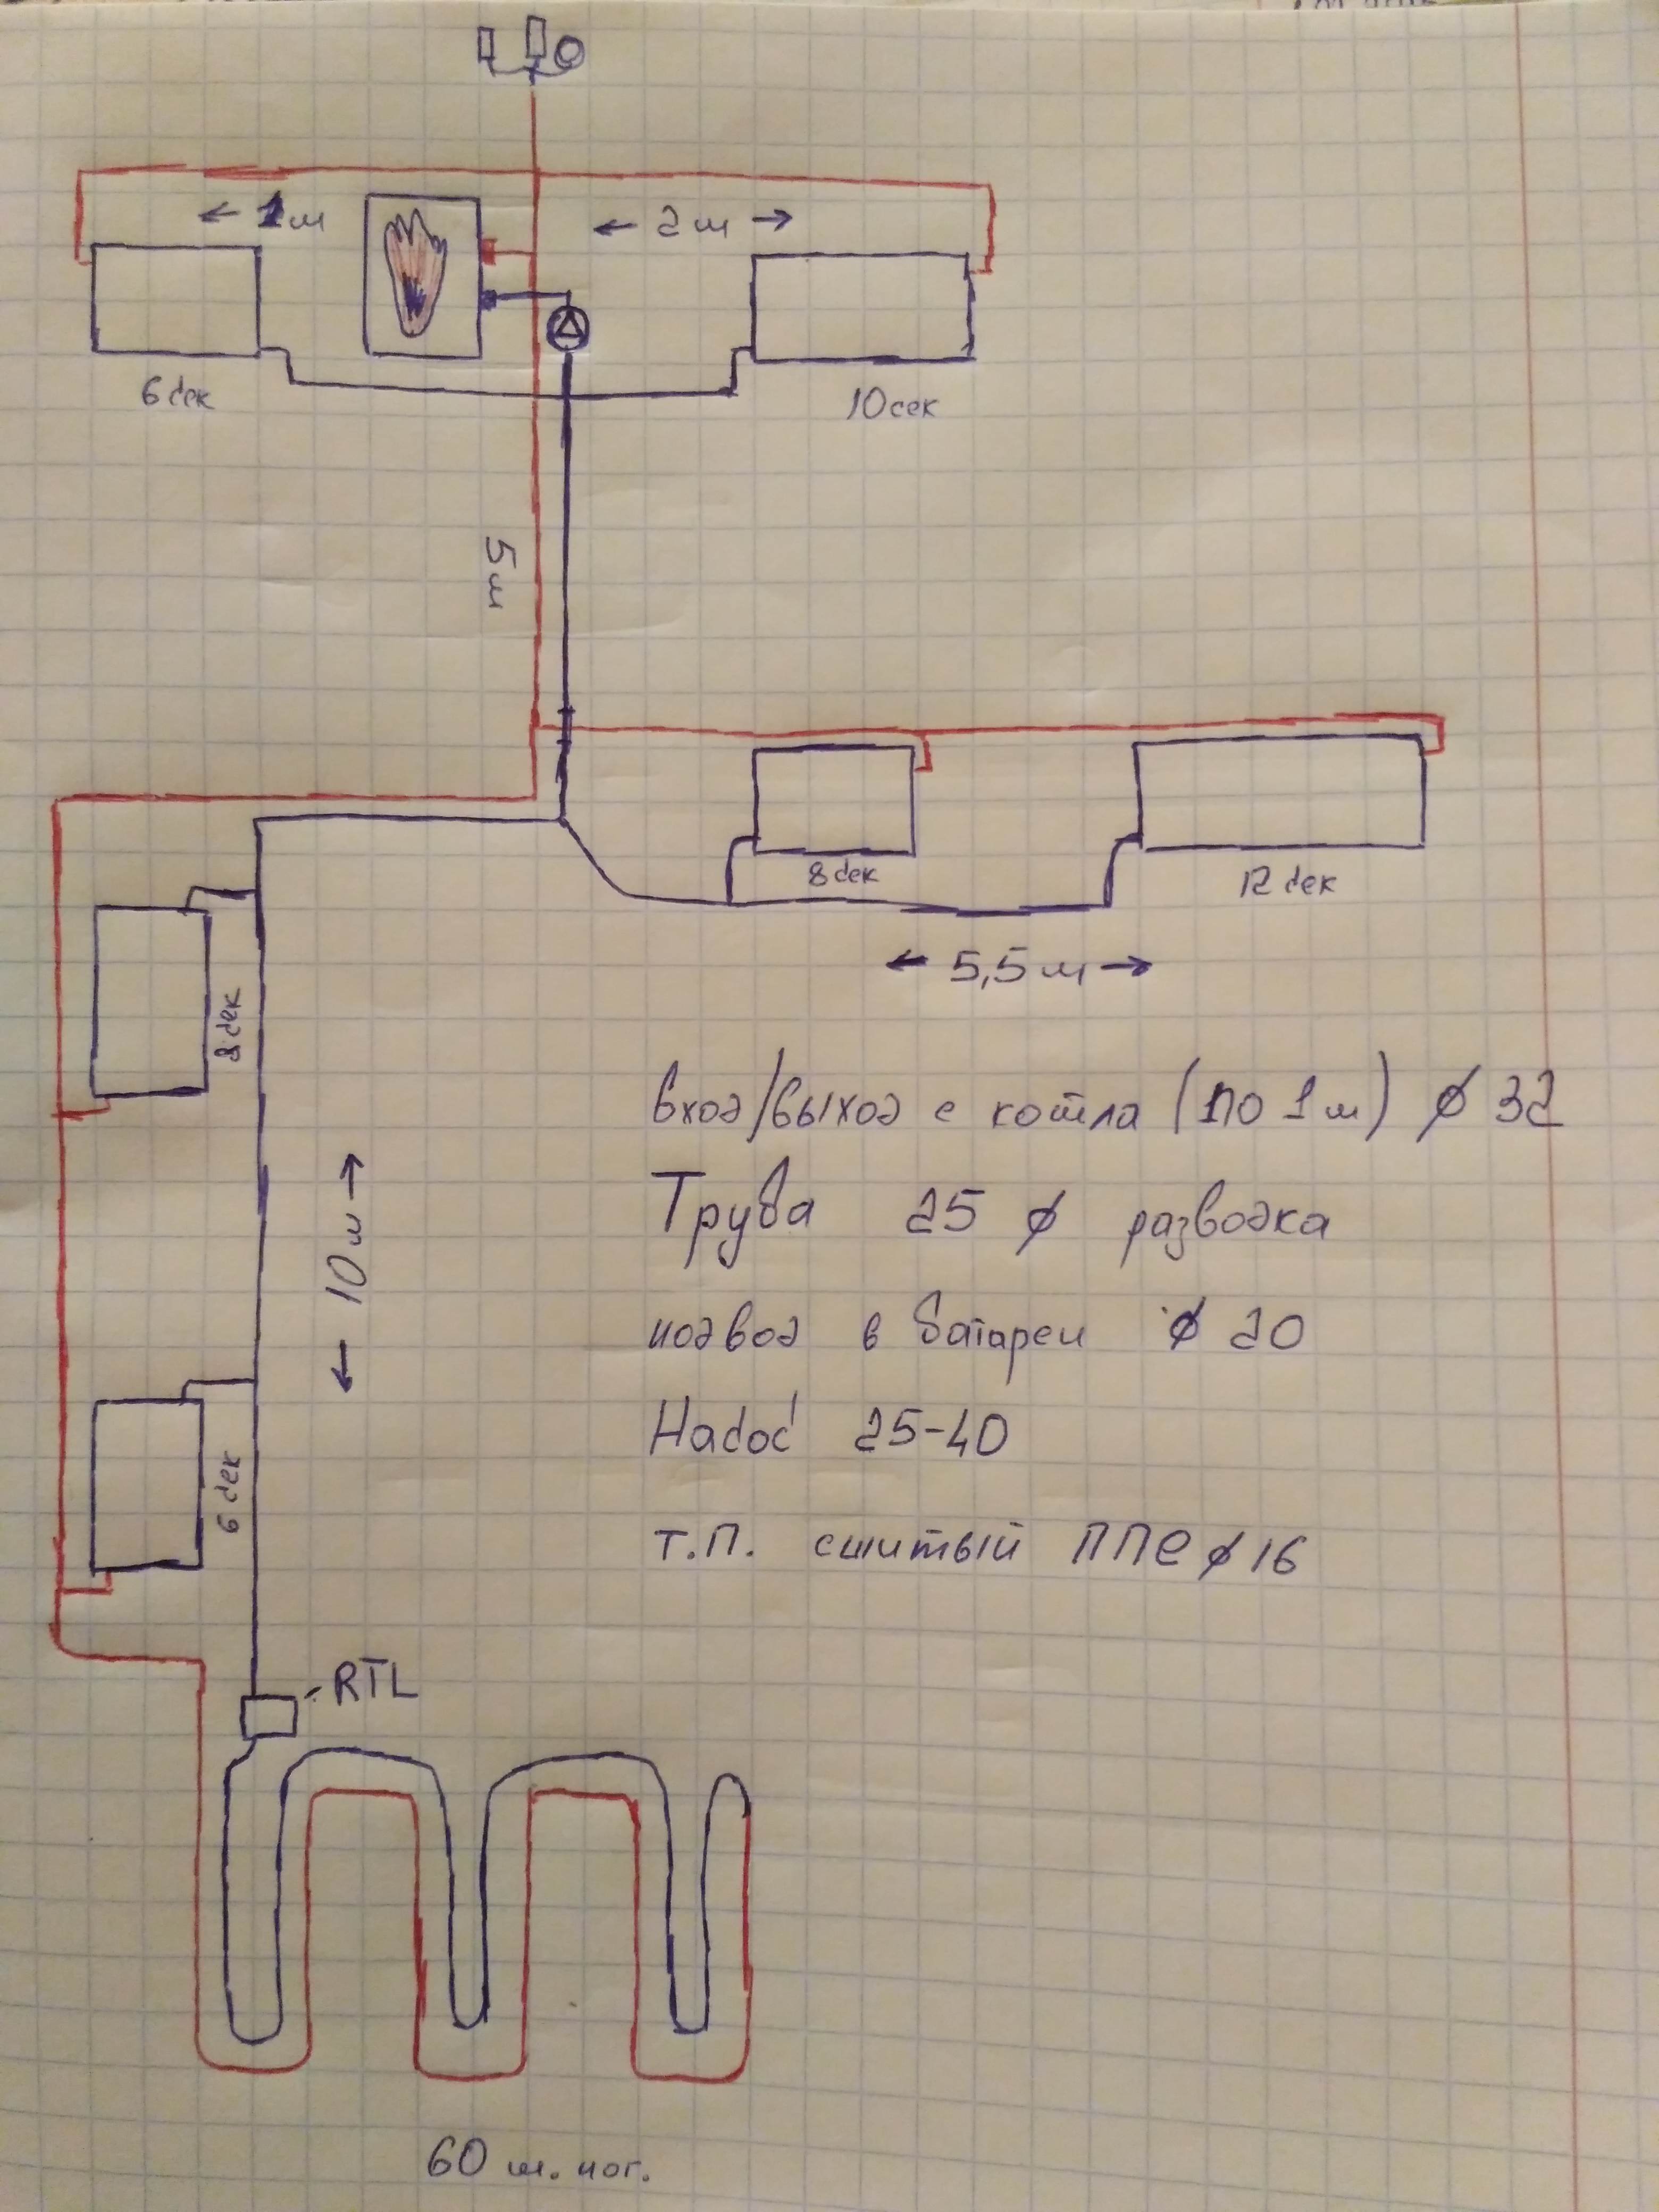 1м
2м
6 сек
10 сек
5м
8 сек
12 сек
5,5 м
8 сек
вход/выход с котла (по 1м) ϕ 32
Труба 25 ϕ разводка
10м
подвод в батареи ϕ 20
Насос 25-40
6 сек
т.п. сшитый ППе ϕ 16
RTL
60 м. пог.